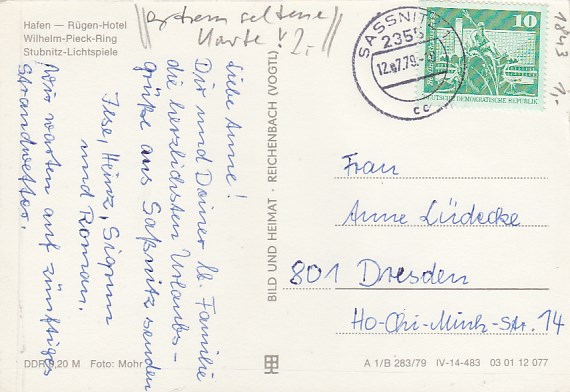 Hafen — Rügen-Hotel
Wilhelm-Pieck-Ring
Stubnitz-Lichtspiele
extrem seltene
Karte! 2.-
SASSNITZ 1
2355
12.-7.79.-
cc
10
DEUTSCHE DEMOKRATISCHE REPUBLIK
1843
1,-
Liebe Anne!
Dir und Deiner lb. Familie
die herzlichsten Urlaubs-
grüße aus Saßnitz senden
Ilse, Heinz, Sigrun
und Roman.
Wir warten auf zünftiges
Strandwetter.
BILD UND HEIMAT · REICHENBACH (VOGTL)
Frau
Anne Lüdecke
801 Dresden
Ho-Chi-Minh-Str. 14
DDR 0,20 M Foto: Mohr
A 1/B 283/79 IV-14-483 03 01 12 077